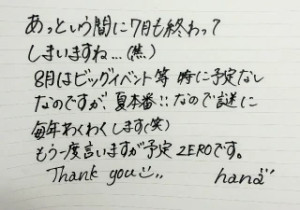 あっという間に7月も終わって
しまいますね…(焦)
8月はビッグイベント等 特に予定なし
なのですが、夏本番!!なので謎に
毎年わくわくします(笑)
もう一度言いますが予定ZEROです。
Thank you
hana